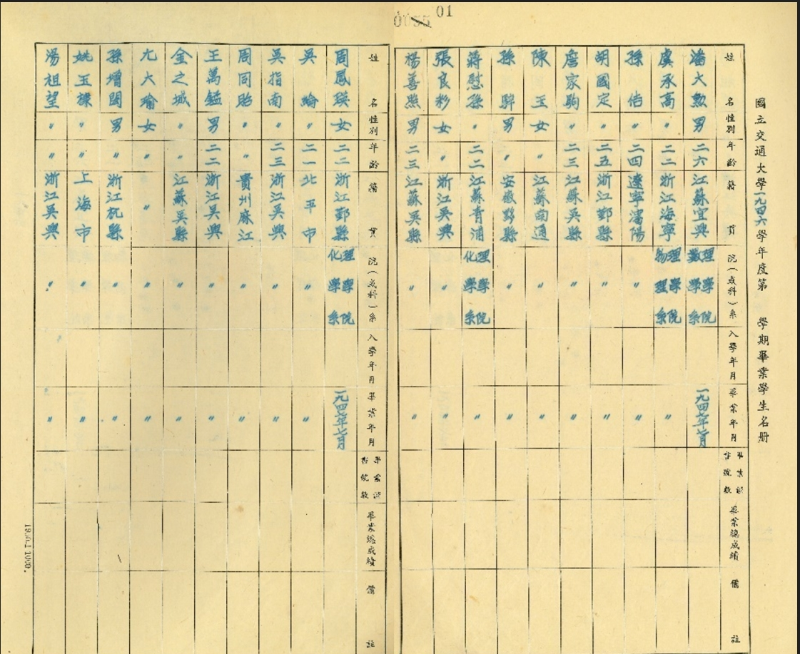 0055 01
國立交通大學一九四六學年度第 學期畢業學生名冊
姓名 性別 年齡 籍貫 院(或科)系 入學年月 畢業年月 畢業總成績 備註
潘大勲 男 二六 江蘇宜興 理學院數學系 一九四七年七月
虞承高 〃 二二 浙江海寧 理學院物理系 〃
孫佶 〃 二四 遼寧瀋陽 〃 〃
胡國定 〃 二五 浙江鄞縣 〃 〃
唐家駒 〃 二三 江蘇吳縣 〃 〃
陳玉 女 〃 江蘇南通 〃 〃
孫 男 〃 安徽黟縣 〃 〃
蔣慰孫 〃 二二 江蘇青浦 理學院化學系 〃
張良珍 女 〃 浙江吳興 〃 〃
楊善熙 男 二三 江蘇吳縣 〃 〃
周鳳瑛 女 二二 浙江鄞縣 理學院化學系 一九四七年七月
吳 〃 二一 北平市 〃 〃
吳指南 〃 二三 浙江吳興 〃 〃
周同貽 〃 〃 貴州麻江 〃 〃
王萬鎰 男 二二 浙江吳興 〃 〃
金之城 〃 〃 江蘇吳縣 〃 〃
尤大瑜 女 〃 〃 〃 〃
孫增閎 男 〃 浙江杭縣 〃 〃
姚玉 〃 〃 上海市 〃 〃
湯祖望 〃 〃 浙江吳興 〃 〃